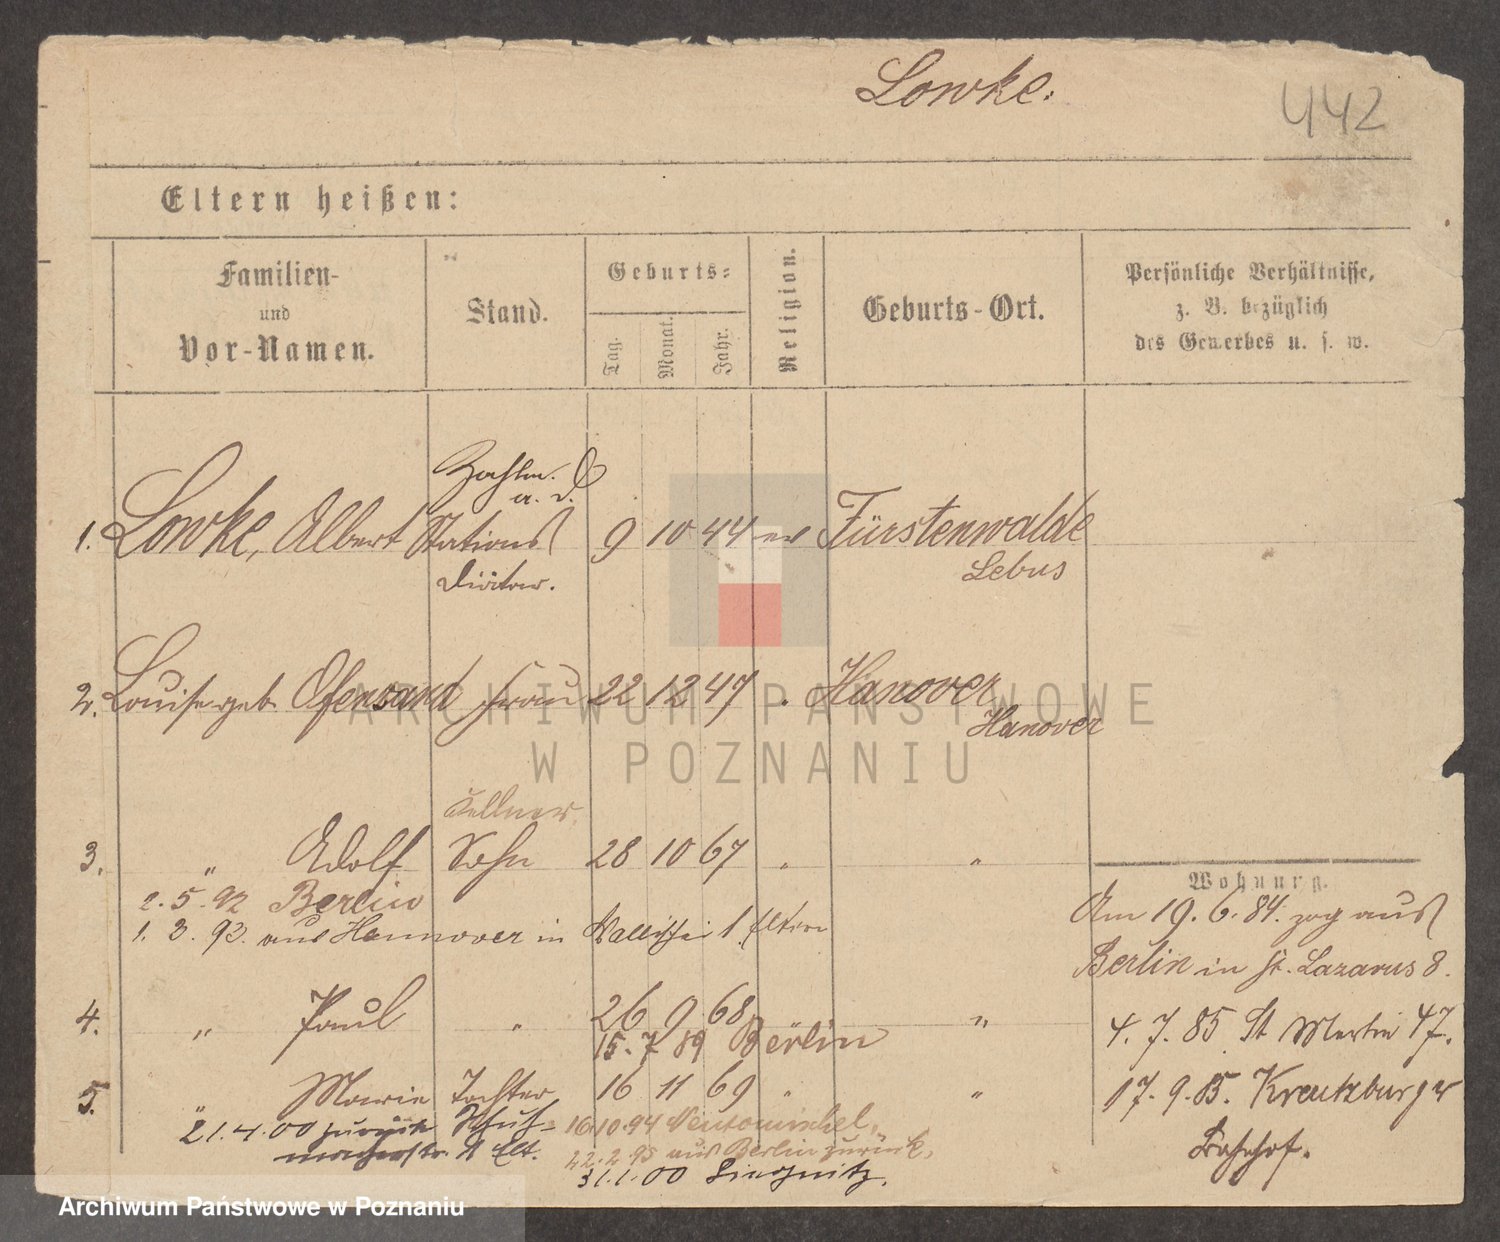 Lowke.
442
Eltern heißen:
Familien-
und
Vor-Namen.
Stand.
Geburts-
Tag.
Monat.
Jahr.
Religion.
Geburts-Ort.
Persönliche Verhältnisse,
z. B. bezüglich
des Gewerbes u. s. w.
Zahlm.
a. D.
1. Lowke, Albert Stations 9 10 44 ev Fürstenwalde
Diätar. Lebus
2. Louise geb. Ofensand Frau 22 12 47 Hanover
Hanover
ARCHIWUM PAŃSTWOWE
W POZNANIU
Kellner
3. " Adolf Sohn 28 10 67 " "
2. 5. 92 Berlin
1. 3. 93. aus Hannover in Wallischei 1 Eltern
Wohnung.
Am 19. 6. 84. zog aus
Berlin in St. Lazarus 8.
4. " Paul " 26 9 68 "
15. 7 89 Berlin
4. 7. 85 St Martin 47.
5. " Marie Tochter 16 11 69 " "
17. 9. 85. Kreutzburger
Bahnhof.
21. 4. 00 zurück Schuh-
macherstr. 11 Elt.
16.10.94 Neutomischel,
22. 2. 95 aus Berlin zurück,
31.1.00 Liegnitz.
Archiwum Państwowe w Poznaniu